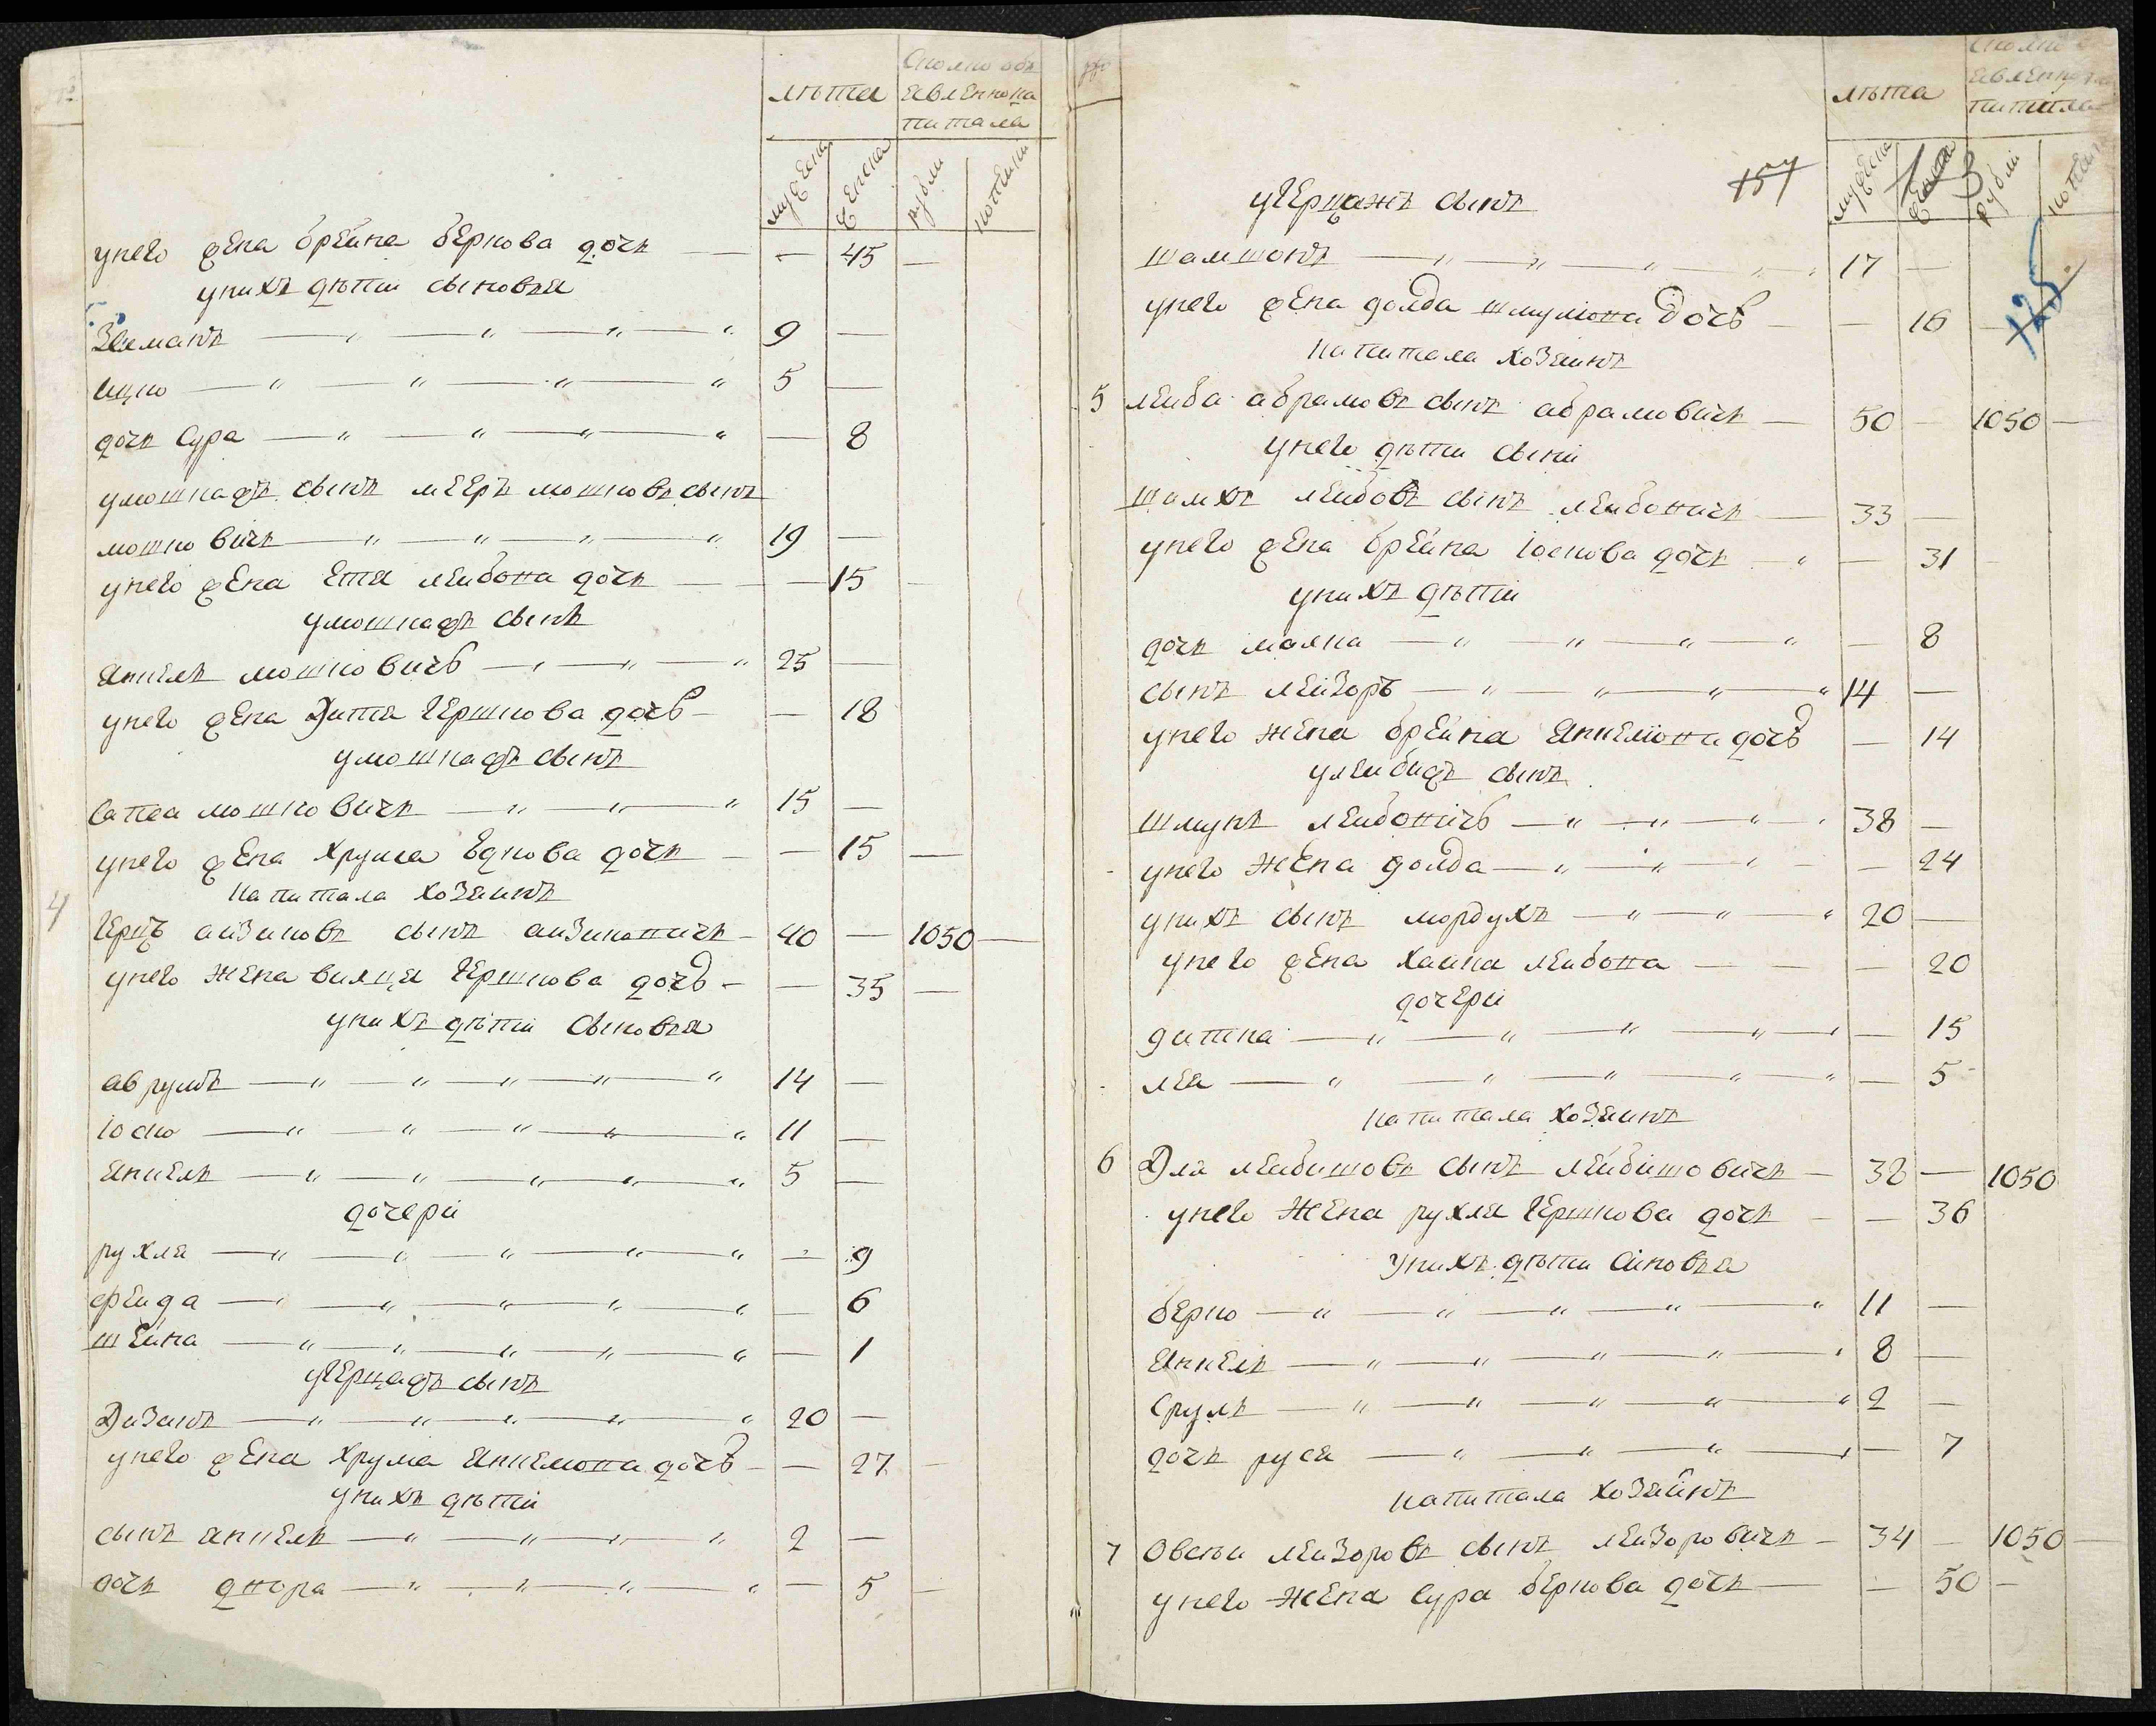 №
лѣта
Сколко объ
явленнока
питала
мужска
женска
рубли
копейки
унего жена брейна беркова дочь — — 45 —
унихъ дѣти сыновья
Зелманъ — 9 —
ицко — 5 —
дочь Сура — — 8
умошкажъ сынъ мееръ мошковъ сынъ
мошковичъ — 19 —
унего жена етя лейбова дочь — — 15 —
умошкажъ сынъ
янкель мошковичь — 25 —
унего жена Дитя Гершкова дочь — — 18
умошкажъ сынъ
сапса мошковичъ — 15 —
унего жена хрума дочь — — 15 —
капитала хозяинъ
4 Герцъ айзиковъ сынъ айзиковичъ — 40 — 1050 —
унего жена вилця Гершкова дочь — — 35 —
унихъ дѣти Сыновья
аврумъ — 14 —
юско — 11 —
янкель — 5 —
дочери
рухля — — 9
фейда — — 6
шейна — — 1
угерцажъ сынъ
20 —
унего жена Хрума янкелюва дочь — — 27 —
унихъ дѣти
сынъ янкель — 2 —
дочь двора — — 5 —
№
лѣта
Сколко
явленнока
питала
мужска
женска
рубли
копейки
157
3
125
угерцажъ сынъ
шамшонъ — 17 —
унего жена голда шмулюва дочь — — 16 —
капитала хозяинъ
5 лейба абрамовъ сынъ абрамовичъ — 50 — 1050 —
унего дѣти сыни
лейбовъ сынъ лейбовичъ — 33 —
унего жена брейна юскова дочь — — 31 —
унихъ дѣти
дочь малка — — 8
сынъ лейзоръ — 14 —
унего жена брейна янкелюва дочь — 14
улейбижъ сынъ
лейбовичь — 38 —
унего жена голда — — 24
унихъ сынъ мордухъ — 20 —
унего жена хайка лейбова — — 20
дочери
дитка — — 15
лея — — 5
капитала хозяинъ
6 Эля лейбишовъ сынъ лейбишовичъ — 38 — 1050
унего жена рухля Гершкова дочь — — 36
унихъ дѣти синовья
берко — 11 —
янкель — 8 —
сруль — 2 —
дочь руся — — 7
капитала хозяйнъ
7 Овсѣи лейзоровъ сынъ лейзоровичъ — 34 — 1050 —
унего жена сура беркова дочь — — 50 —